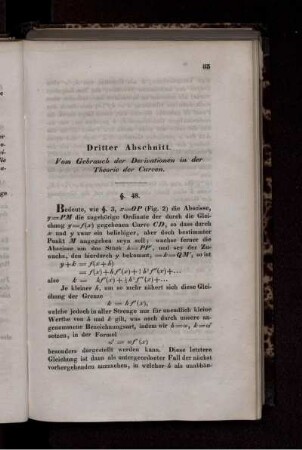 63
Dritter Abschnitt.
Vom Gebrauch der Derivationen in der
Theorie der Curven.
§. 48.
Bedeute, wie §. 3, x=OP (Fig. 2) die Abscisse,
y=PM die zugehörige Ordinate der durch die Glei-
chung y=f(x) gegebenen Curve CD, so dass durch
x und y zwar ein beliebiger, aber doch bestimmter
Punkt M angegeben seyn soll; wachse ferner die
Abscisse um das Stück h=PP', und sei der Zu-
wachs, den hierdurch y bekommt, =k=QM', so ist
y+k = f(x+h)
= f(x)+hf'(x)+½h²f''(x)+...
also k = hf'(x)+½h²f''(x)+...
Je kleiner h, um so mehr nähert sich diese Glei-
chung der Grenze
k = hf'(x),
welche jedoch in aller Strenge nur für unendlich kleine
Werthe von h und k gilt, was auch durch unsere an-
genommene Bezeichnungsart, indem wir h=u, k=u'
setzen, in der Formel
u' = uf'(x)
besonders dargestellt werden kann. Diese letztere
Gleichung ist dann als untergeordneter Fall der nächst
vorhergehenden anzusehen, in welcher h als unabhän-